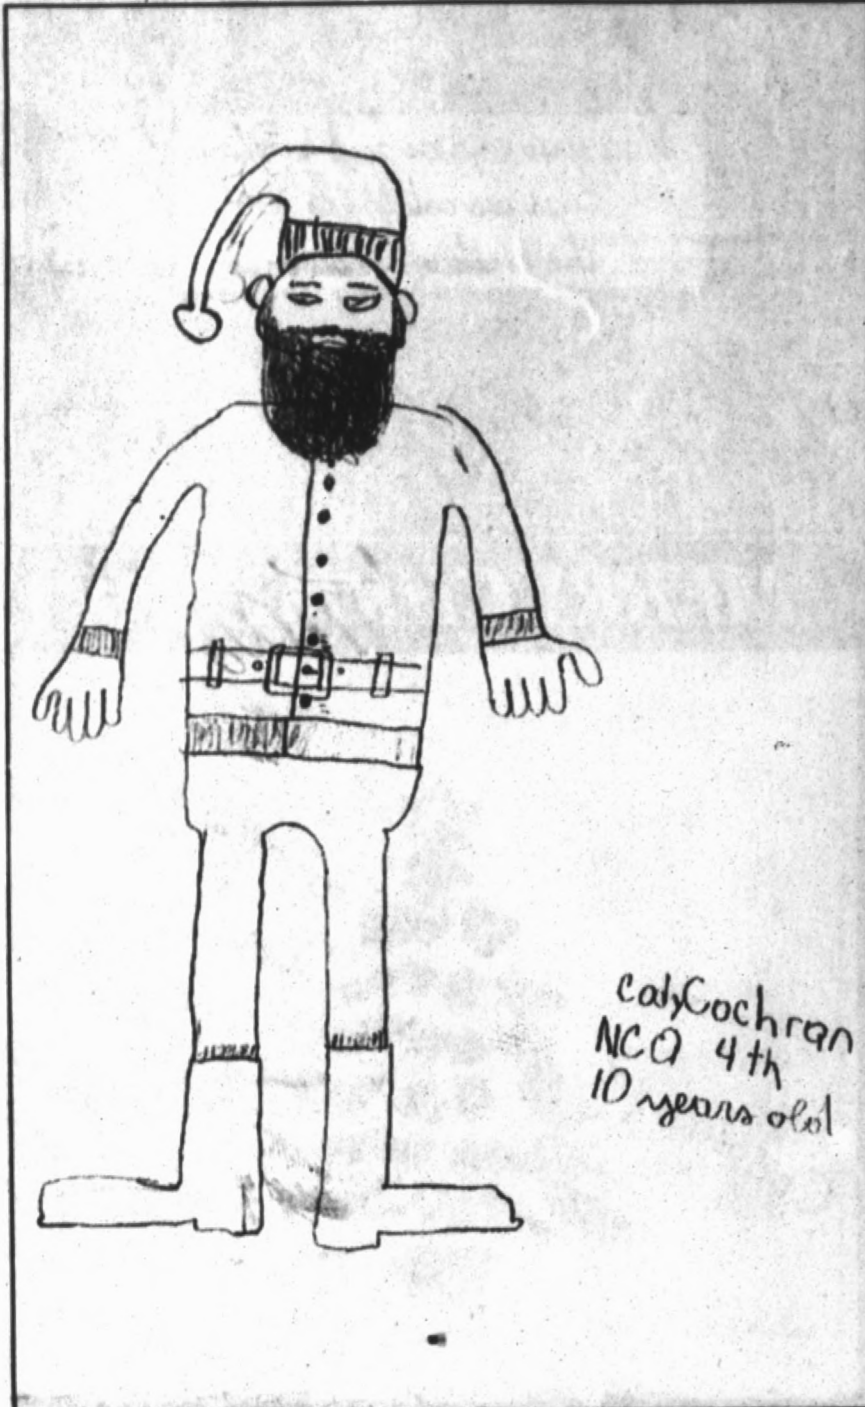 Cochran
NCA 4th
10 years old